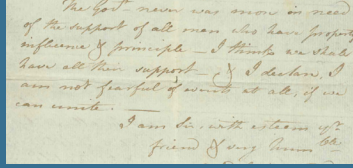 The Govt. never was more in need
of the support of all men who have property
influence & principle — I think we shall
have all their support — & I declare, I
am not fearful of events at all, if we
can unite. —
I am Sir, with esteem yr.
friend & very hum ble